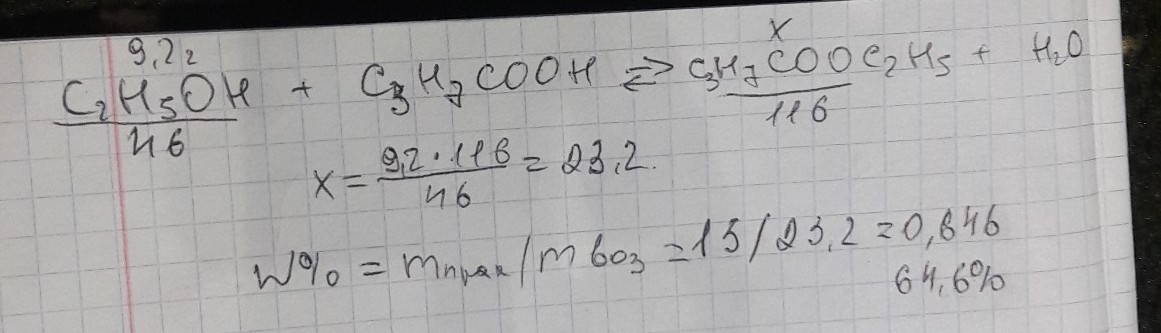 9,2г x
C₂H₅OH + C₃H₇COOH ⇌ C₃H₇COOC₂H₅ + H₂O
46 116
x = 9,2 · 116 / 46 = 23,2.
W% = mпрак/m воз = 15/23,2 = 0,646
64,6%